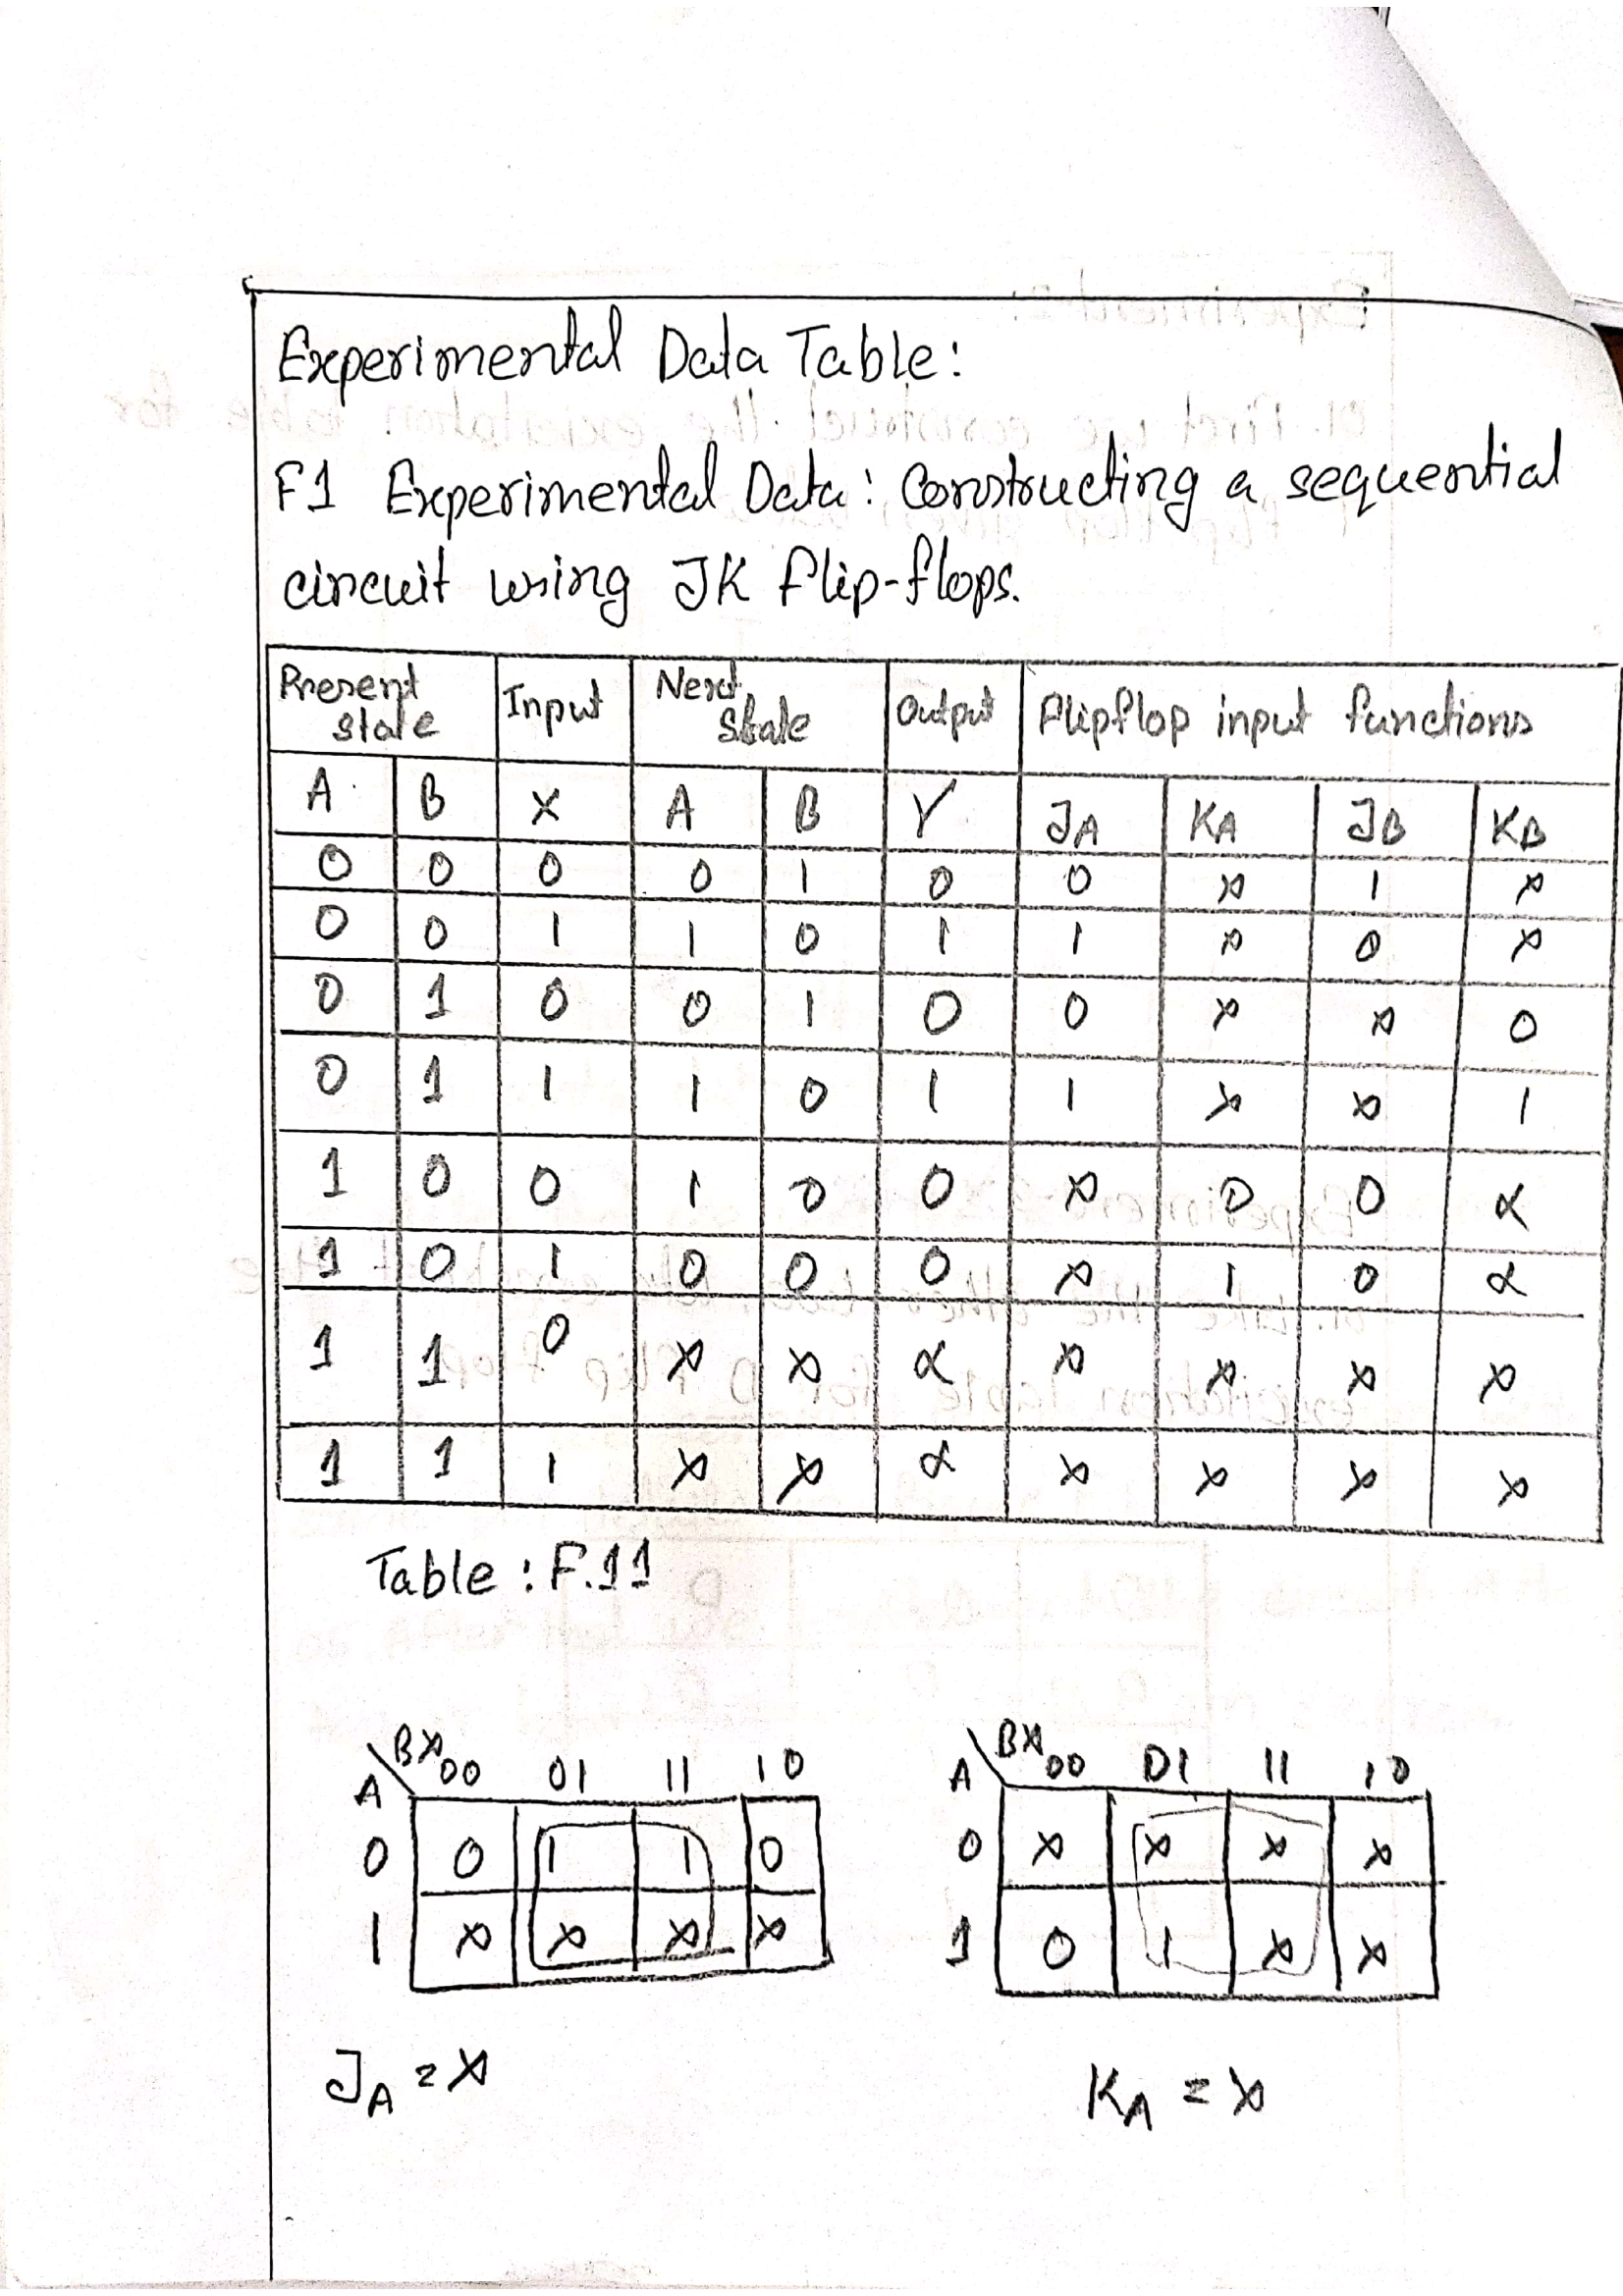 Experimental Data Table:
F1 Experimental Data: Constructing a sequential
circuit using JK flip-flops.
Present state Input Next State Output Flipflop input functions
A B X A B Y JA KA JB KB
0 0 0 0 1 0 0 x 1 x
0 0 1 1 0 1 1 x 0 x
0 1 0 0 1 0 0 x x 0
0 1 1 1 0 1 1 x x 1
1 0 0 1 0 0 x 0 0 x
1 0 1 0 0 0 x 1 0 x
1 1 0 x x x x x x x
1 1 1 x x x x x x x
Table : F.11
A \ BX 00 01 11 10
0 0 1 1 0
1 x x x x
JA = X
A \ BX 00 01 11 10
0 x x x x
1 0 1 x x
KA = X